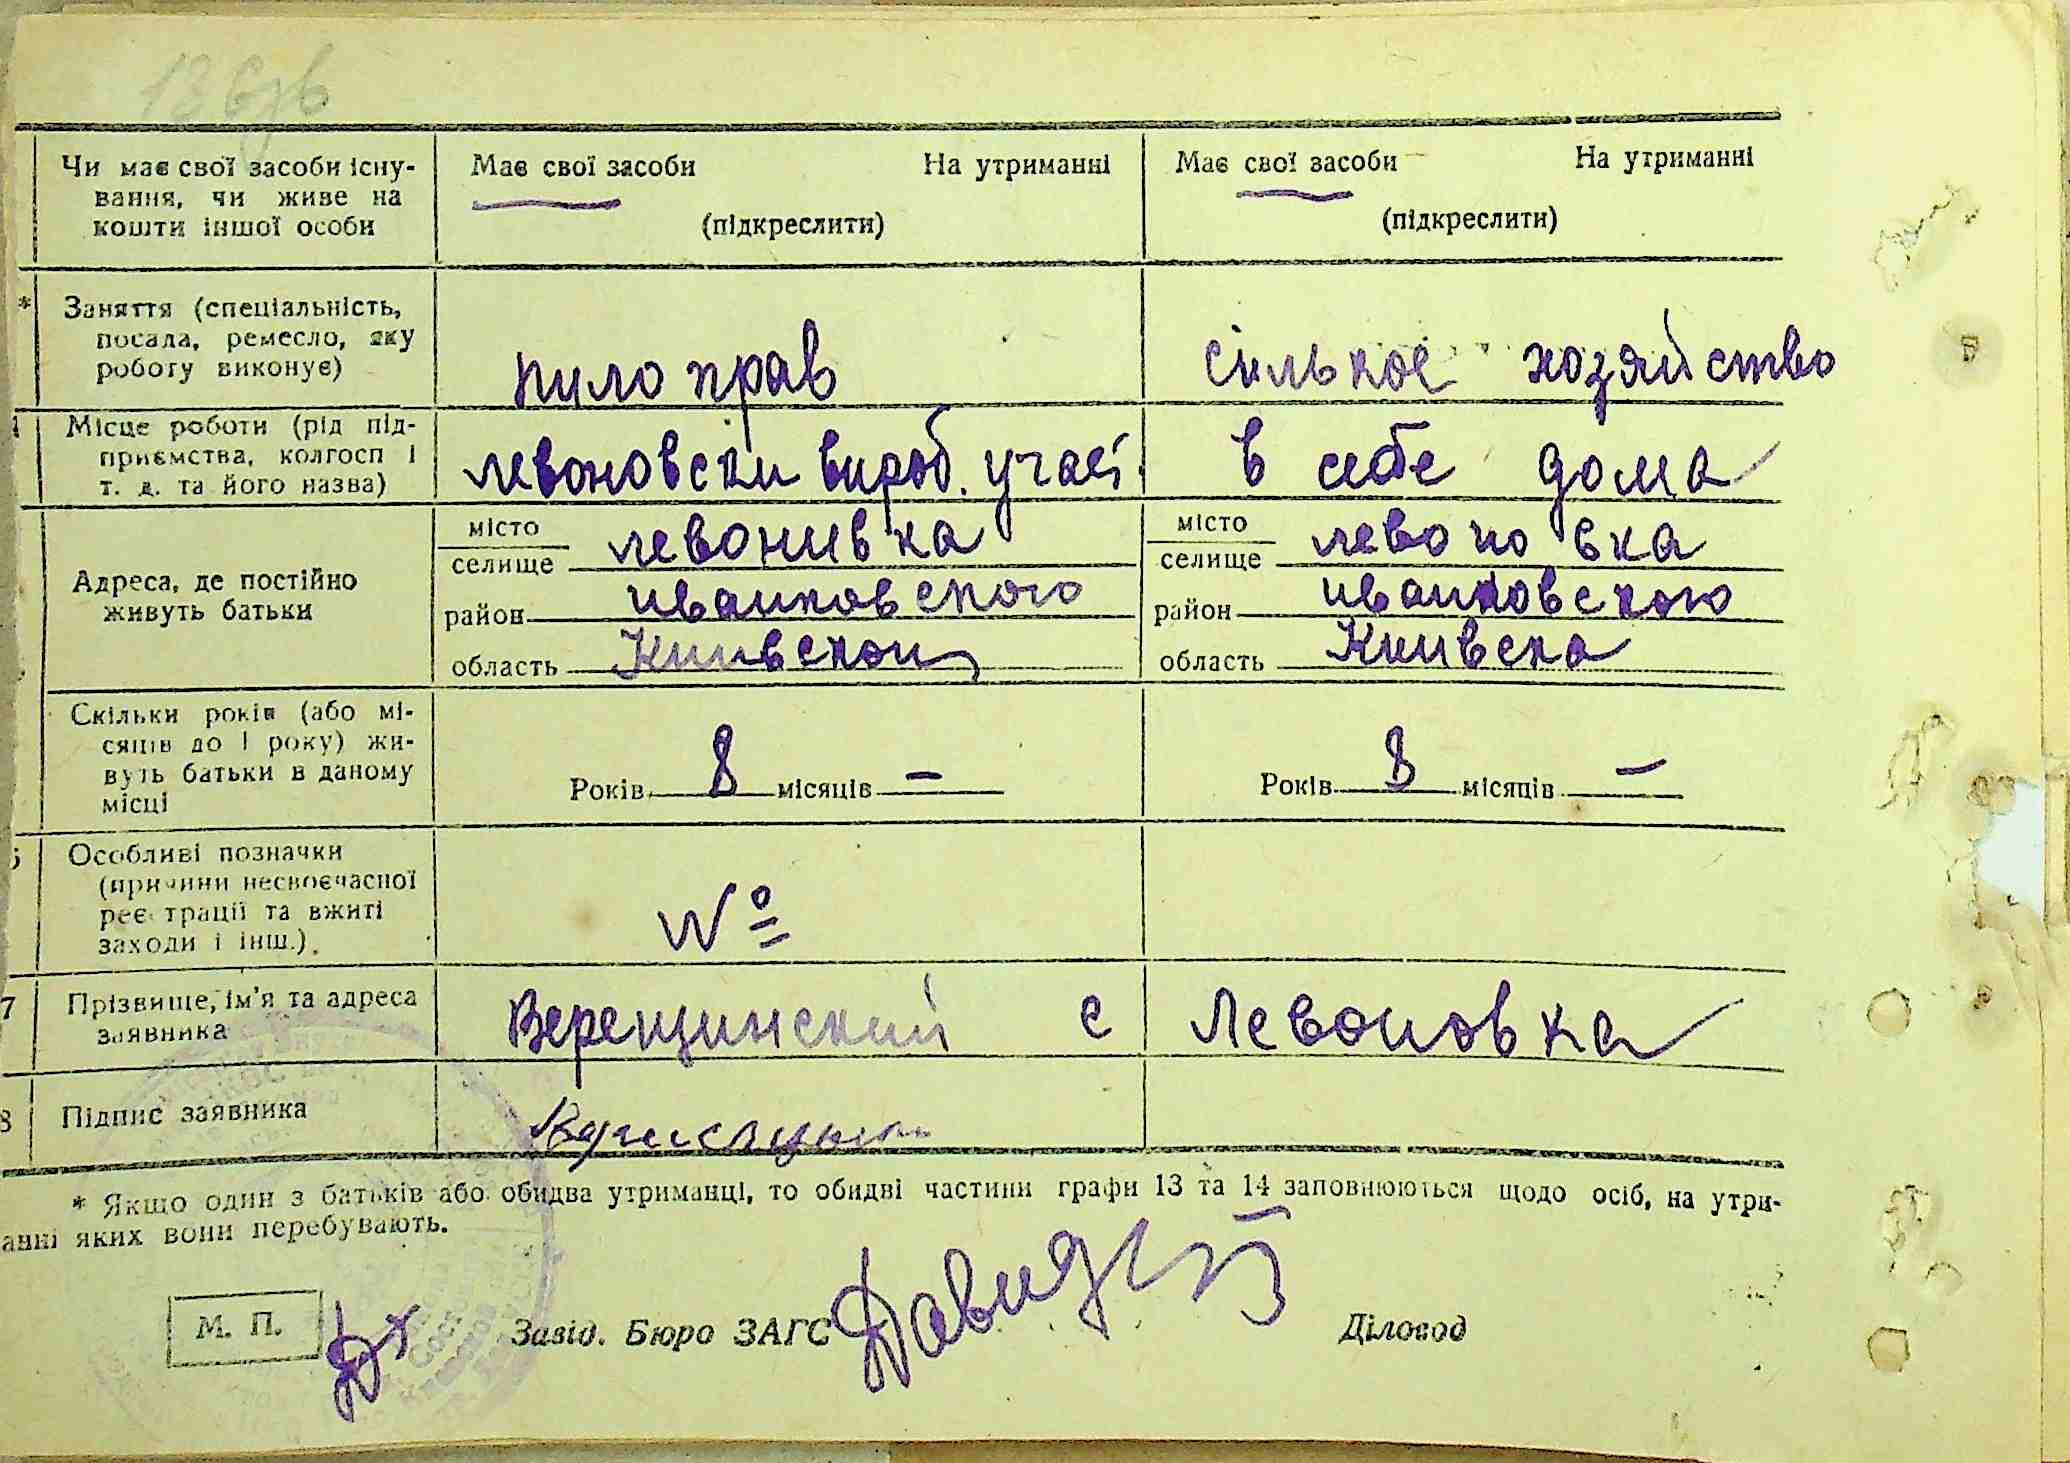 Чи має свої засоби існу-
вання, чи живе на
кошти іншої особи
Має свої засоби На утриманні
(підкреслити)
Має свої засоби На утриманні
(підкреслити)
* Заняття (спеціальність,
посада, ремесло, яку
роботу виконує)
пило прав
сильное хозяйство
Місце роботи (рід під-
приємства, колгосп і
т. д. та його назва)
левоновски вироб. участ.
в себе дома
Адреса, де постійно
живуть батьки
місто
селище левонивка
район иванковского
область Киивской
місто
селище левоновка
район иванковского
область Киивска
Скільки років (або мі-
сяців до 1 року) жи-
вуть батьки в даному
місці
Років 8 місяців —
Років 3 місяців —
Особливі позначки
(причини несвоєчасної
реєстрації та вжиті
заходи і інш.).
№
7 Прізвище, ім'я та адреса
заявника
Верещинский с Левоновка
8 Підпис заявника
* Якщо один з батьків або обидва утриманці, то обидві частини графи 13 та 14 заповнюються щодо осіб, на утри-
анні яких вони перебувають.
М. П.
Завід. Бюро ЗАГС
Діловод